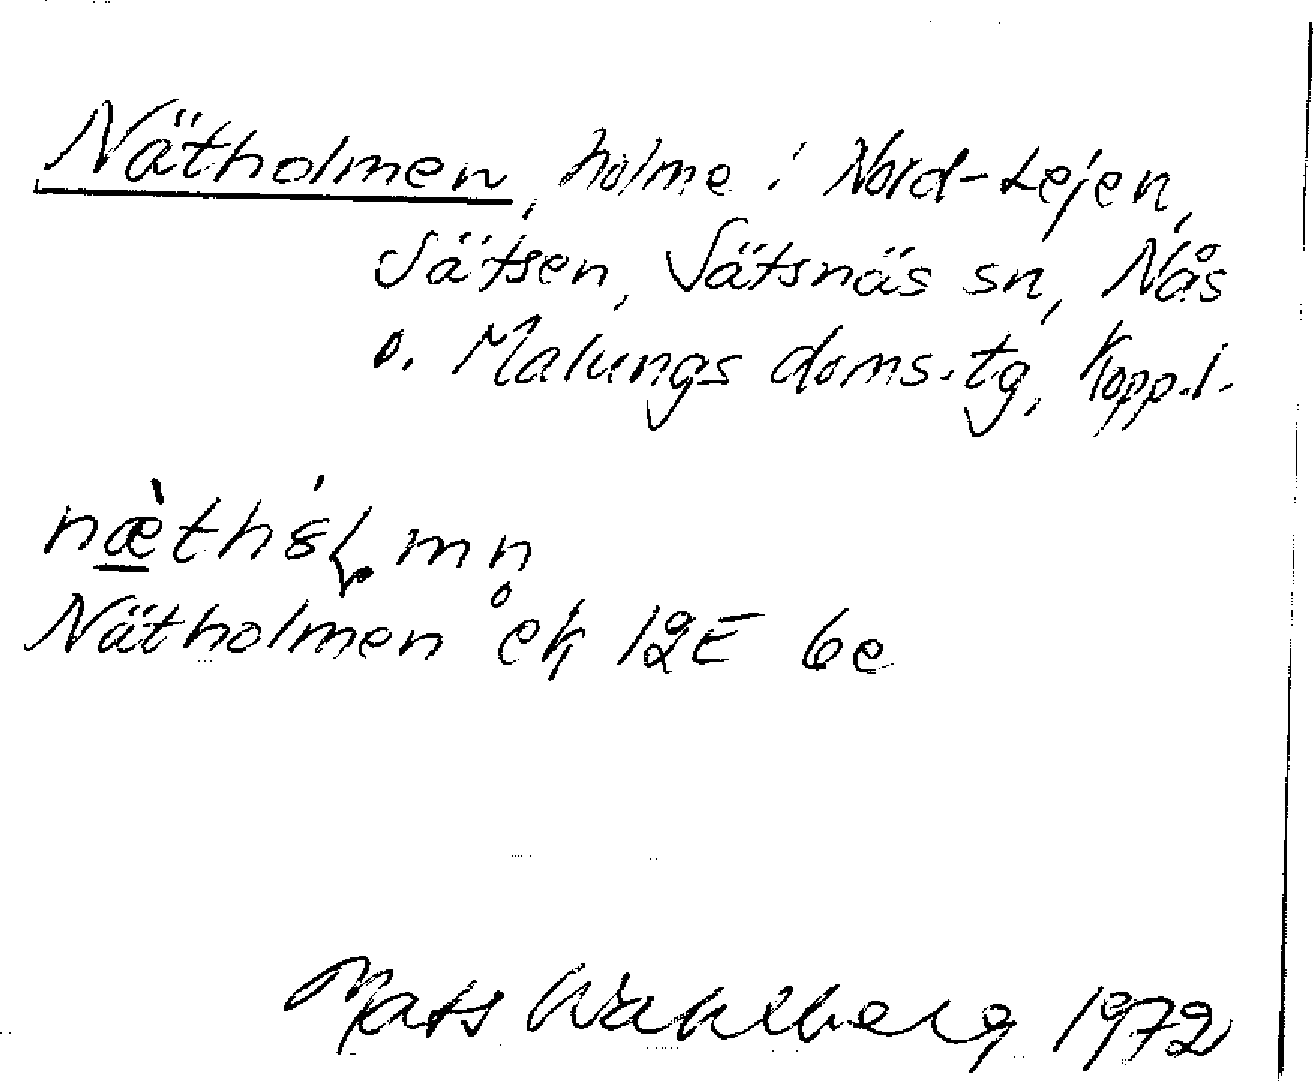 Nätholmen, holme i Nord-Lejen,
Sätsen, Sätsnäs sn, Nås
o. Malungs doms.tg, Kopp.l.
Nätholmen ek 12E 6e
Mats Wahlberg 1972